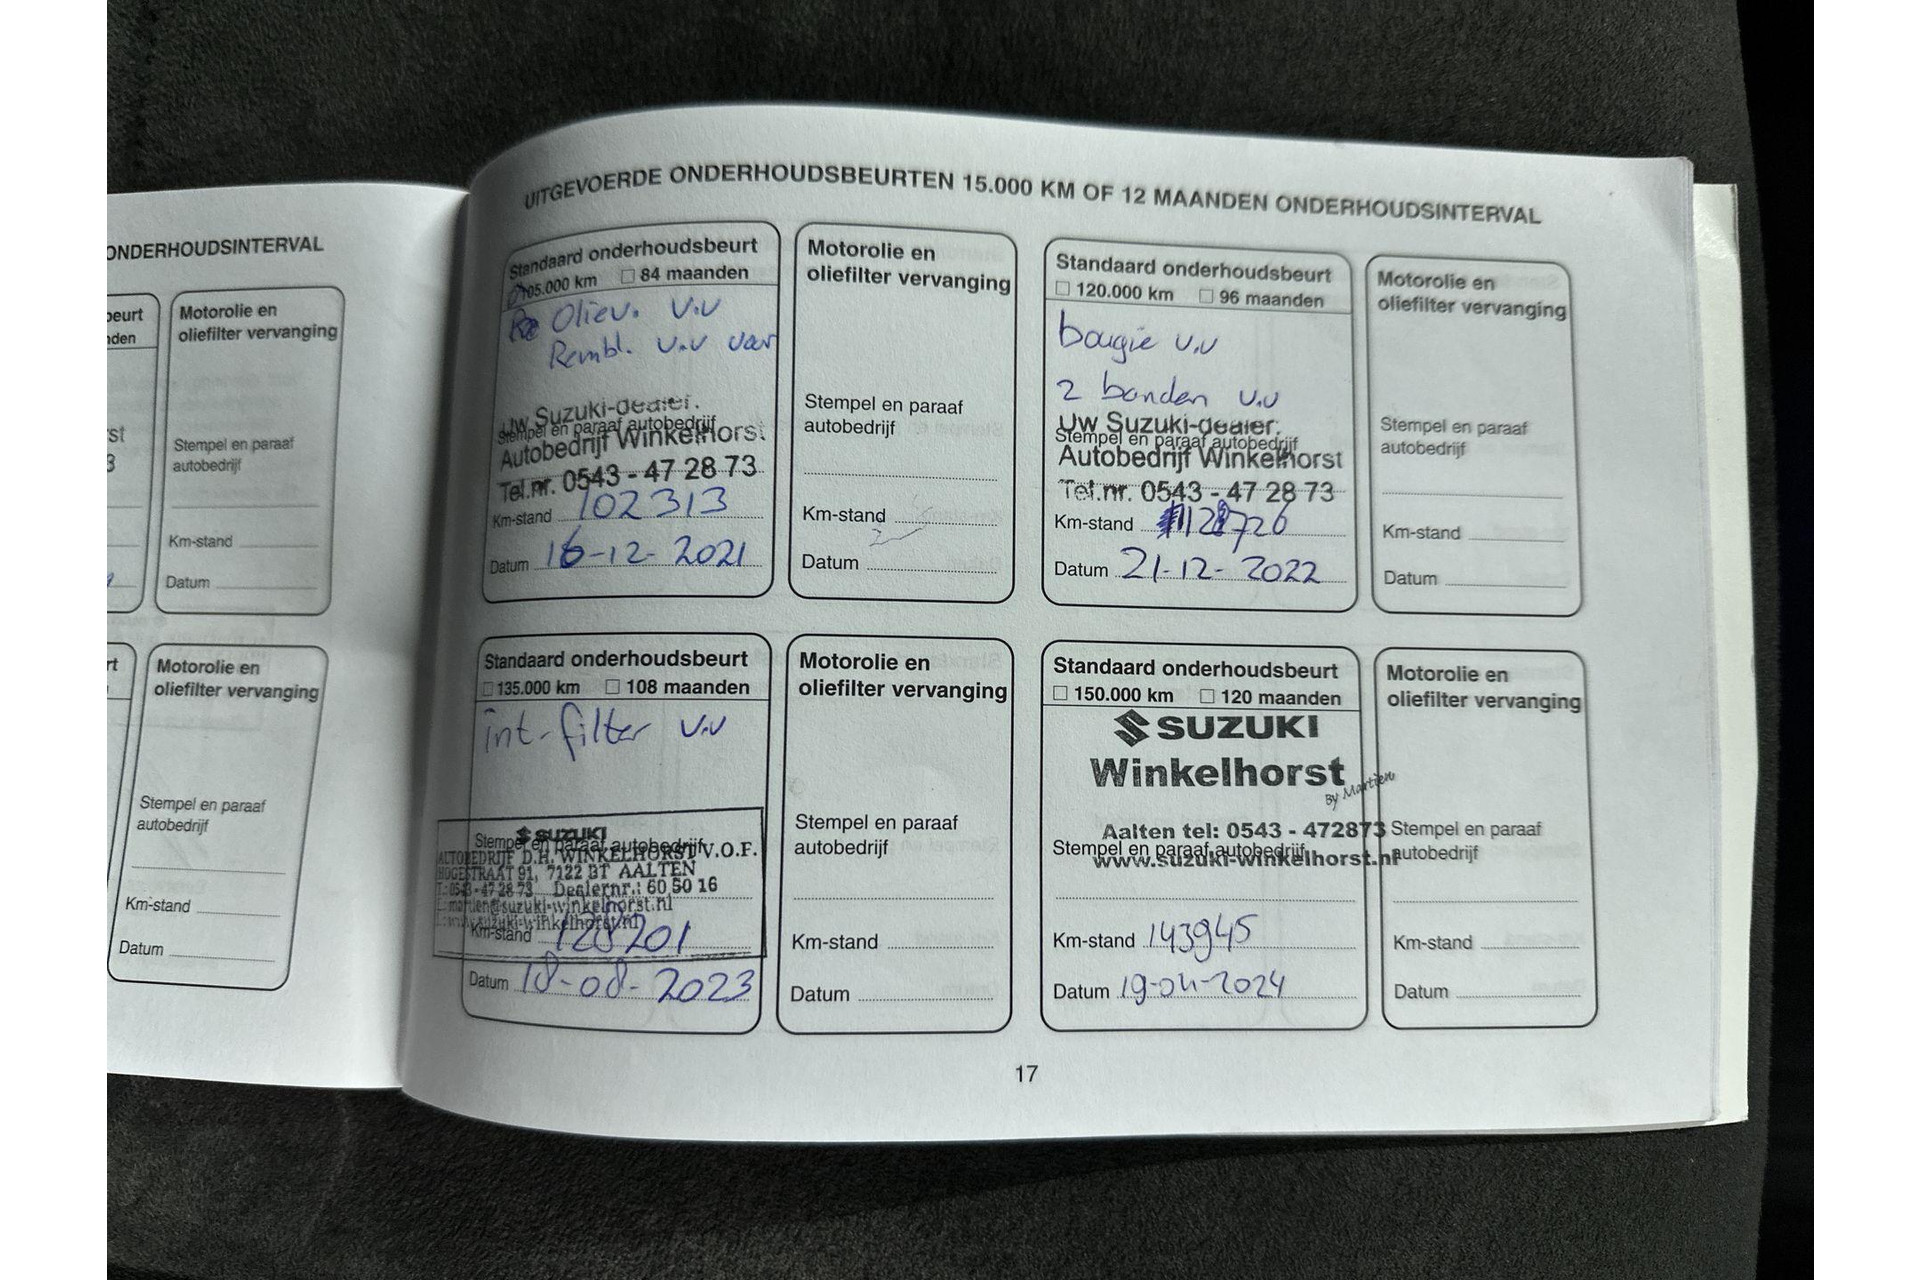 ONDERHOUDSINTERVAL
Motorolie en
oliefilter vervanging
Stempel en paraaf
autobedrijf
Km-stand
Datum
Motorolie en
oliefilter vervanging
Stempel en paraaf
autobedrijf
Km-stand
Datum
UITGEVOERDE ONDERHOUDSBEURTEN 15.000 KM OF 12 MAANDEN ONDERHOUDSINTERVAL
Standaard onderhoudsbeurt
105.000 km 84 maanden
Oliev. v.v
Rembl. v.v voor
Uw Suzuki-dealer.
Stempel en paraaf autobedrijf
Autobedrijf Winkelhorst
Tel.nr. 0543 - 47 28 73
Km-stand 102313
Datum 16-12-2021
Motorolie en
oliefilter vervanging
Stempel en paraaf
autobedrijf
Km-stand
Datum
Standaard onderhoudsbeurt
120.000 km 96 maanden
bougie v.v
2 banden v.v
Uw Suzuki-dealer.
Stempel en paraaf autobedrijf
Autobedrijf Winkelhorst
Tel.nr. 0543 - 47 28 73
Km-stand
Datum 21-12-2022
Motorolie en
oliefilter vervanging
Stempel en paraaf
autobedrijf
Km-stand
Datum
Standaard onderhoudsbeurt
135.000 km 108 maanden
int-filter v.v
SUZUKI
Stempel en paraaf autobedrijf
AUTOBEDRIJF D.H. WINKELHORST V.O.F.
HOGESTRAAT 91, 7122 BT AALTEN
T: 0543 - 47 28 73 Dealernr.: 60 50 16
E: martien@suzuki-winkelhorst.nl
www.suzuki-winkelhorst.nl
Km-stand 128201
Datum 18-08-2023
Motorolie en
oliefilter vervanging
Stempel en paraaf
autobedrijf
Km-stand
Datum
Standaard onderhoudsbeurt
150.000 km 120 maanden
SUZUKI
Winkelhorst
By Martien
Aalten tel: 0543 - 472873
Stempel en paraaf autobedrijf
www.suzuki-winkelhorst.nl
Km-stand 143945
Datum 19-04-2024
Motorolie en
oliefilter vervanging
Stempel en paraaf
autobedrijf
Km-stand
Datum
17